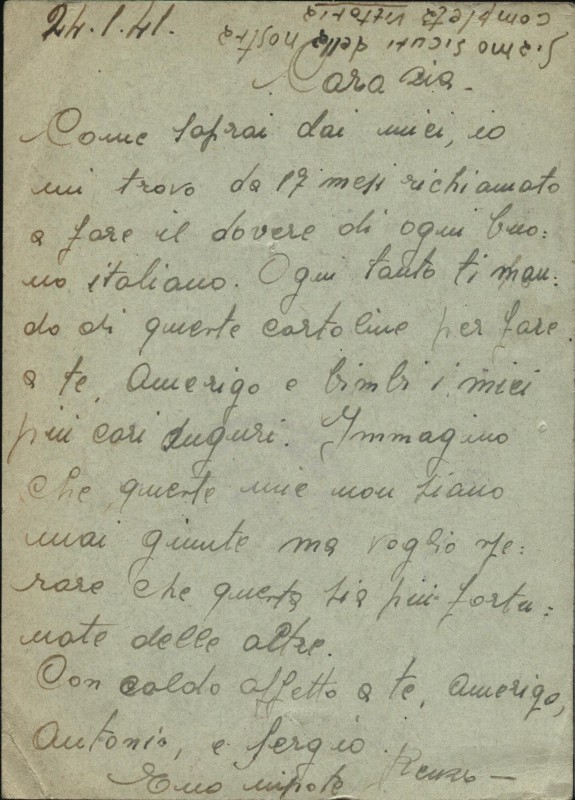 24.1.41.
Siamo sicuri della nostra
completa vittoria
Cara zia.
Come saprai dai miei, io
mi trovo da 17 mesi richiamato
a fare il dovere di ogni buo=
no italiano. Ogni tanto ti man=
do di queste cartoline per fare
a te, Amerigo e bimbi i miei
più cari auguri. Immagino
che queste mie non siano
mai giunte ma voglio spe=
rare che questa sia più fortu=
nate delle altre.
Con caldo affetto a te, Amerigo,
Antonio, e Sergio.
nipote Renzo